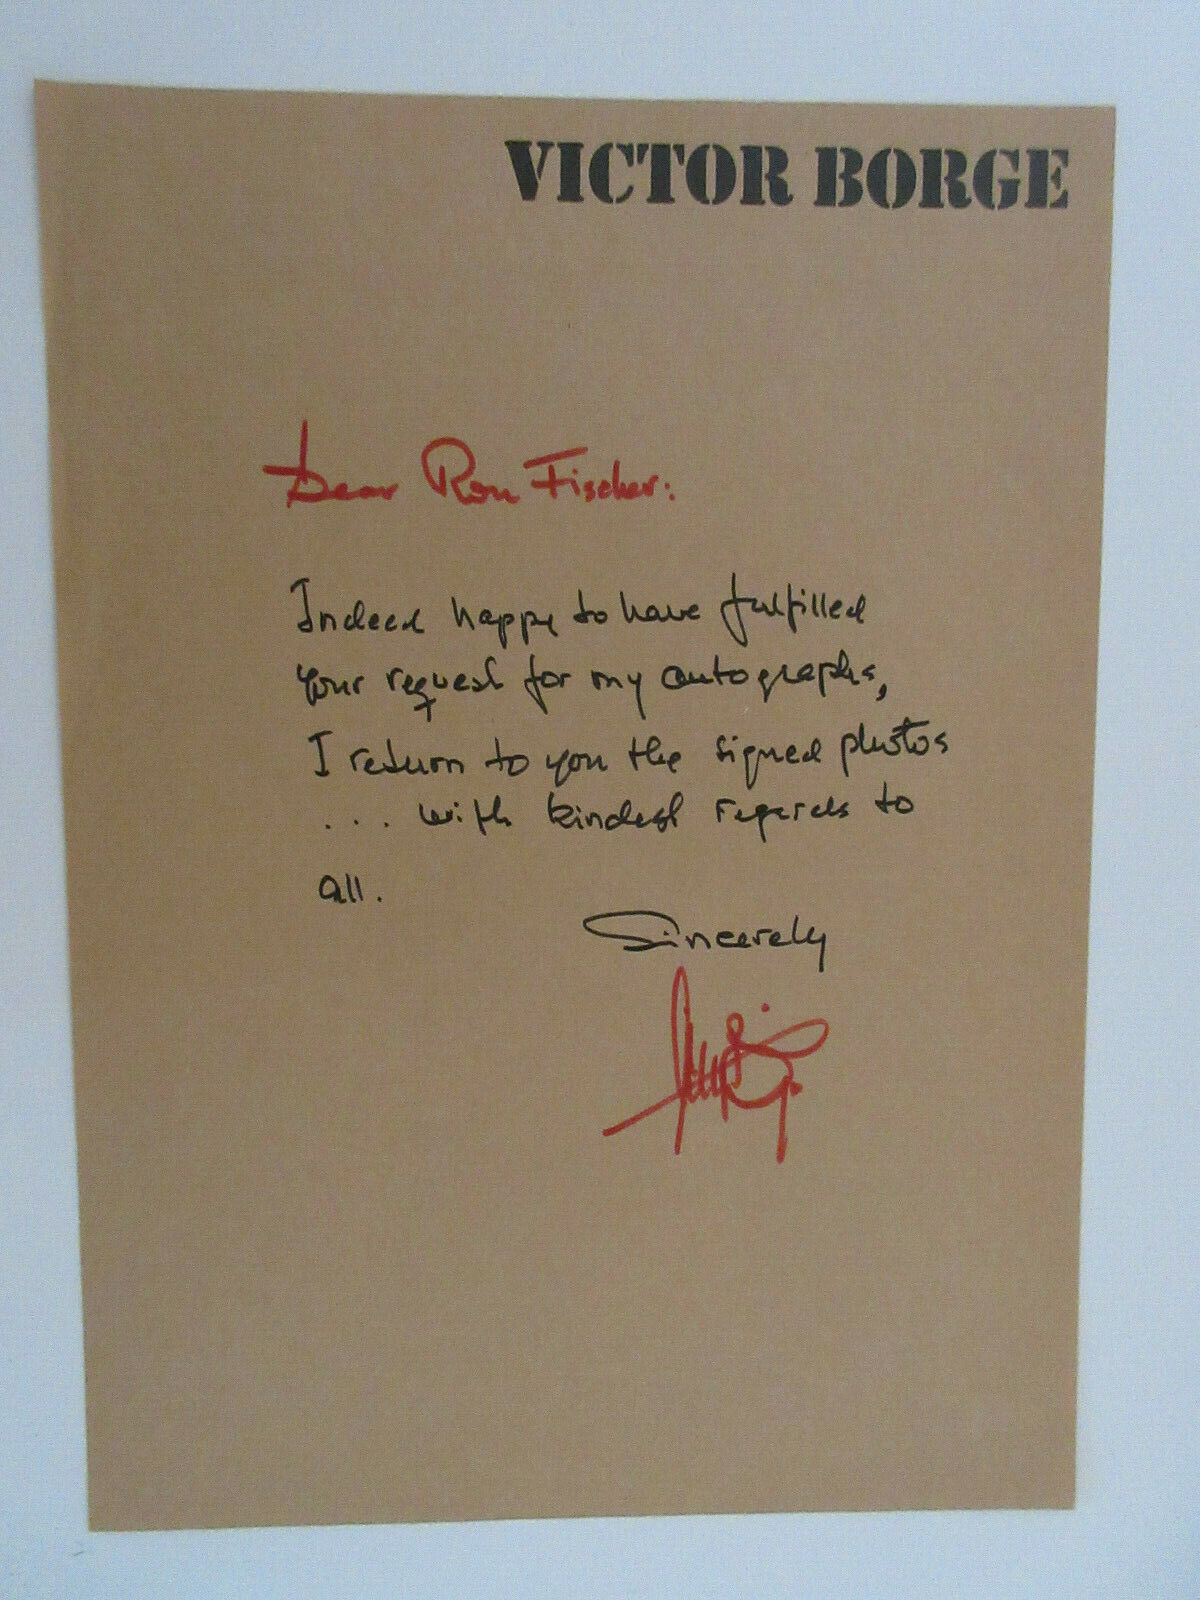 VICTOR BORGE
Dear Ron Fischer:
Indeed happy to have fulfilled
your request for my autographs,
I return to you the signed photos
... with kindest regards to
all.
Sincerely